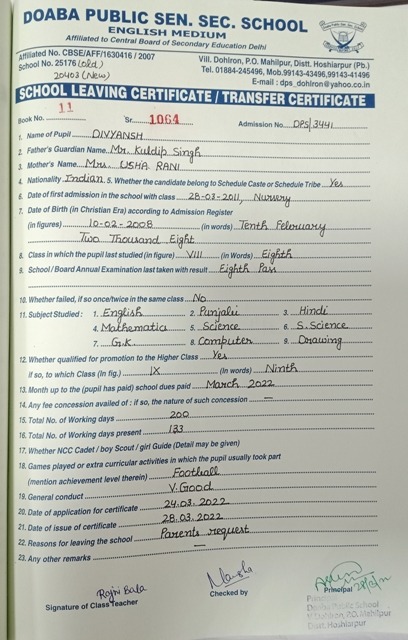 DOABA PUBLIC SEN. SEC. SCHOOL
ENGLISH MEDIUM
Affiliated to Central Board of Secondary Education Delhi
Affiliated No. CBSE/AFF/1630416 / 2007
School No. 25176 (old)
20403 (New)
Vill. Dohlron, P.O. Mahilpur, Distt. Hoshiarpur (Pb.)
Tel. 01884-245496, Mob.99143-43496,99143-41496
E-mail : dps_dohlron@yahoo.co.in
SCHOOL LEAVING CERTIFICATE / TRANSFER CERTIFICATE
Book No. 11 Sr. 1064 Admission No. DPS/3441
1. Name of Pupil DIVYANSH
2. Father's Guardian Name Mr. Kuldip Singh
3. Mother's Name Mrs. USHA RANI
4. Nationality Indian 5. Whether the candidate belong to Schedule Caste or Schedule Tribe Yes
6. Date of first admission in the school with class 28-03-2011, Nursery
7. Date of Birth (in Christian Era) according to Admission Register
(in figures) 10-02-2008 (in words) Tenth February
Two Thousand Eight
8. Class in which the pupil last studied (in figure) VIII (in Words) Eighth
9. School / Board Annual Examination last taken with result Eighth Pass
10. Whether failed, if so once/twice in the same class No
11. Subject Studied : 1. English 2. Punjabi 3. Hindi
4. Mathematics 5. Science 6. S.Science
7. G.K 8. Computer 9. Drawing
12. Whether qualified for promotion to the Higher Class Yes
if so, to which Class (In fig.) IX (In words) Ninth
13. Month up to the (pupil has paid) school dues paid March 2022
14. Any fee concession availed of : if so, the nature of such concession —
15. Total No. of Working days 200
16. Total No. of Working days present 133
17. Whether NCC Cadet / boy Scout / girl Guide (Detail may be given)
18. Games played or extra curricular activities in which the pupil usually took part
(mention achievement level therein) Football
19. General conduct V.Good
20. Date of application for certificate 24.03.2022
21. Date of issue of certificate 28.03.2022
22. Reasons for leaving the school Parents request
23. Any other remarks —
Rajni Bala
Signature of Class Teacher
Checked by
Principal
Doaba Public School
V. Dohlron, P.O. Mahilpur
Distt. Hoshiarpur